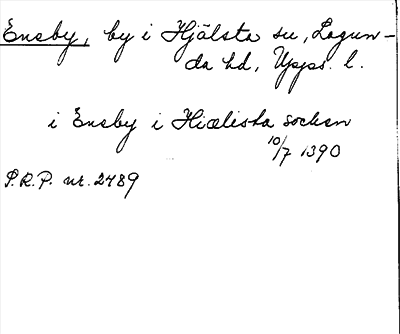 Ensby, by i Hjälsta sn, Lagun-
da hd, Upps. l.
i Ensby i Hiælista socken
10/7 1390
S.R.P. nr. 2489